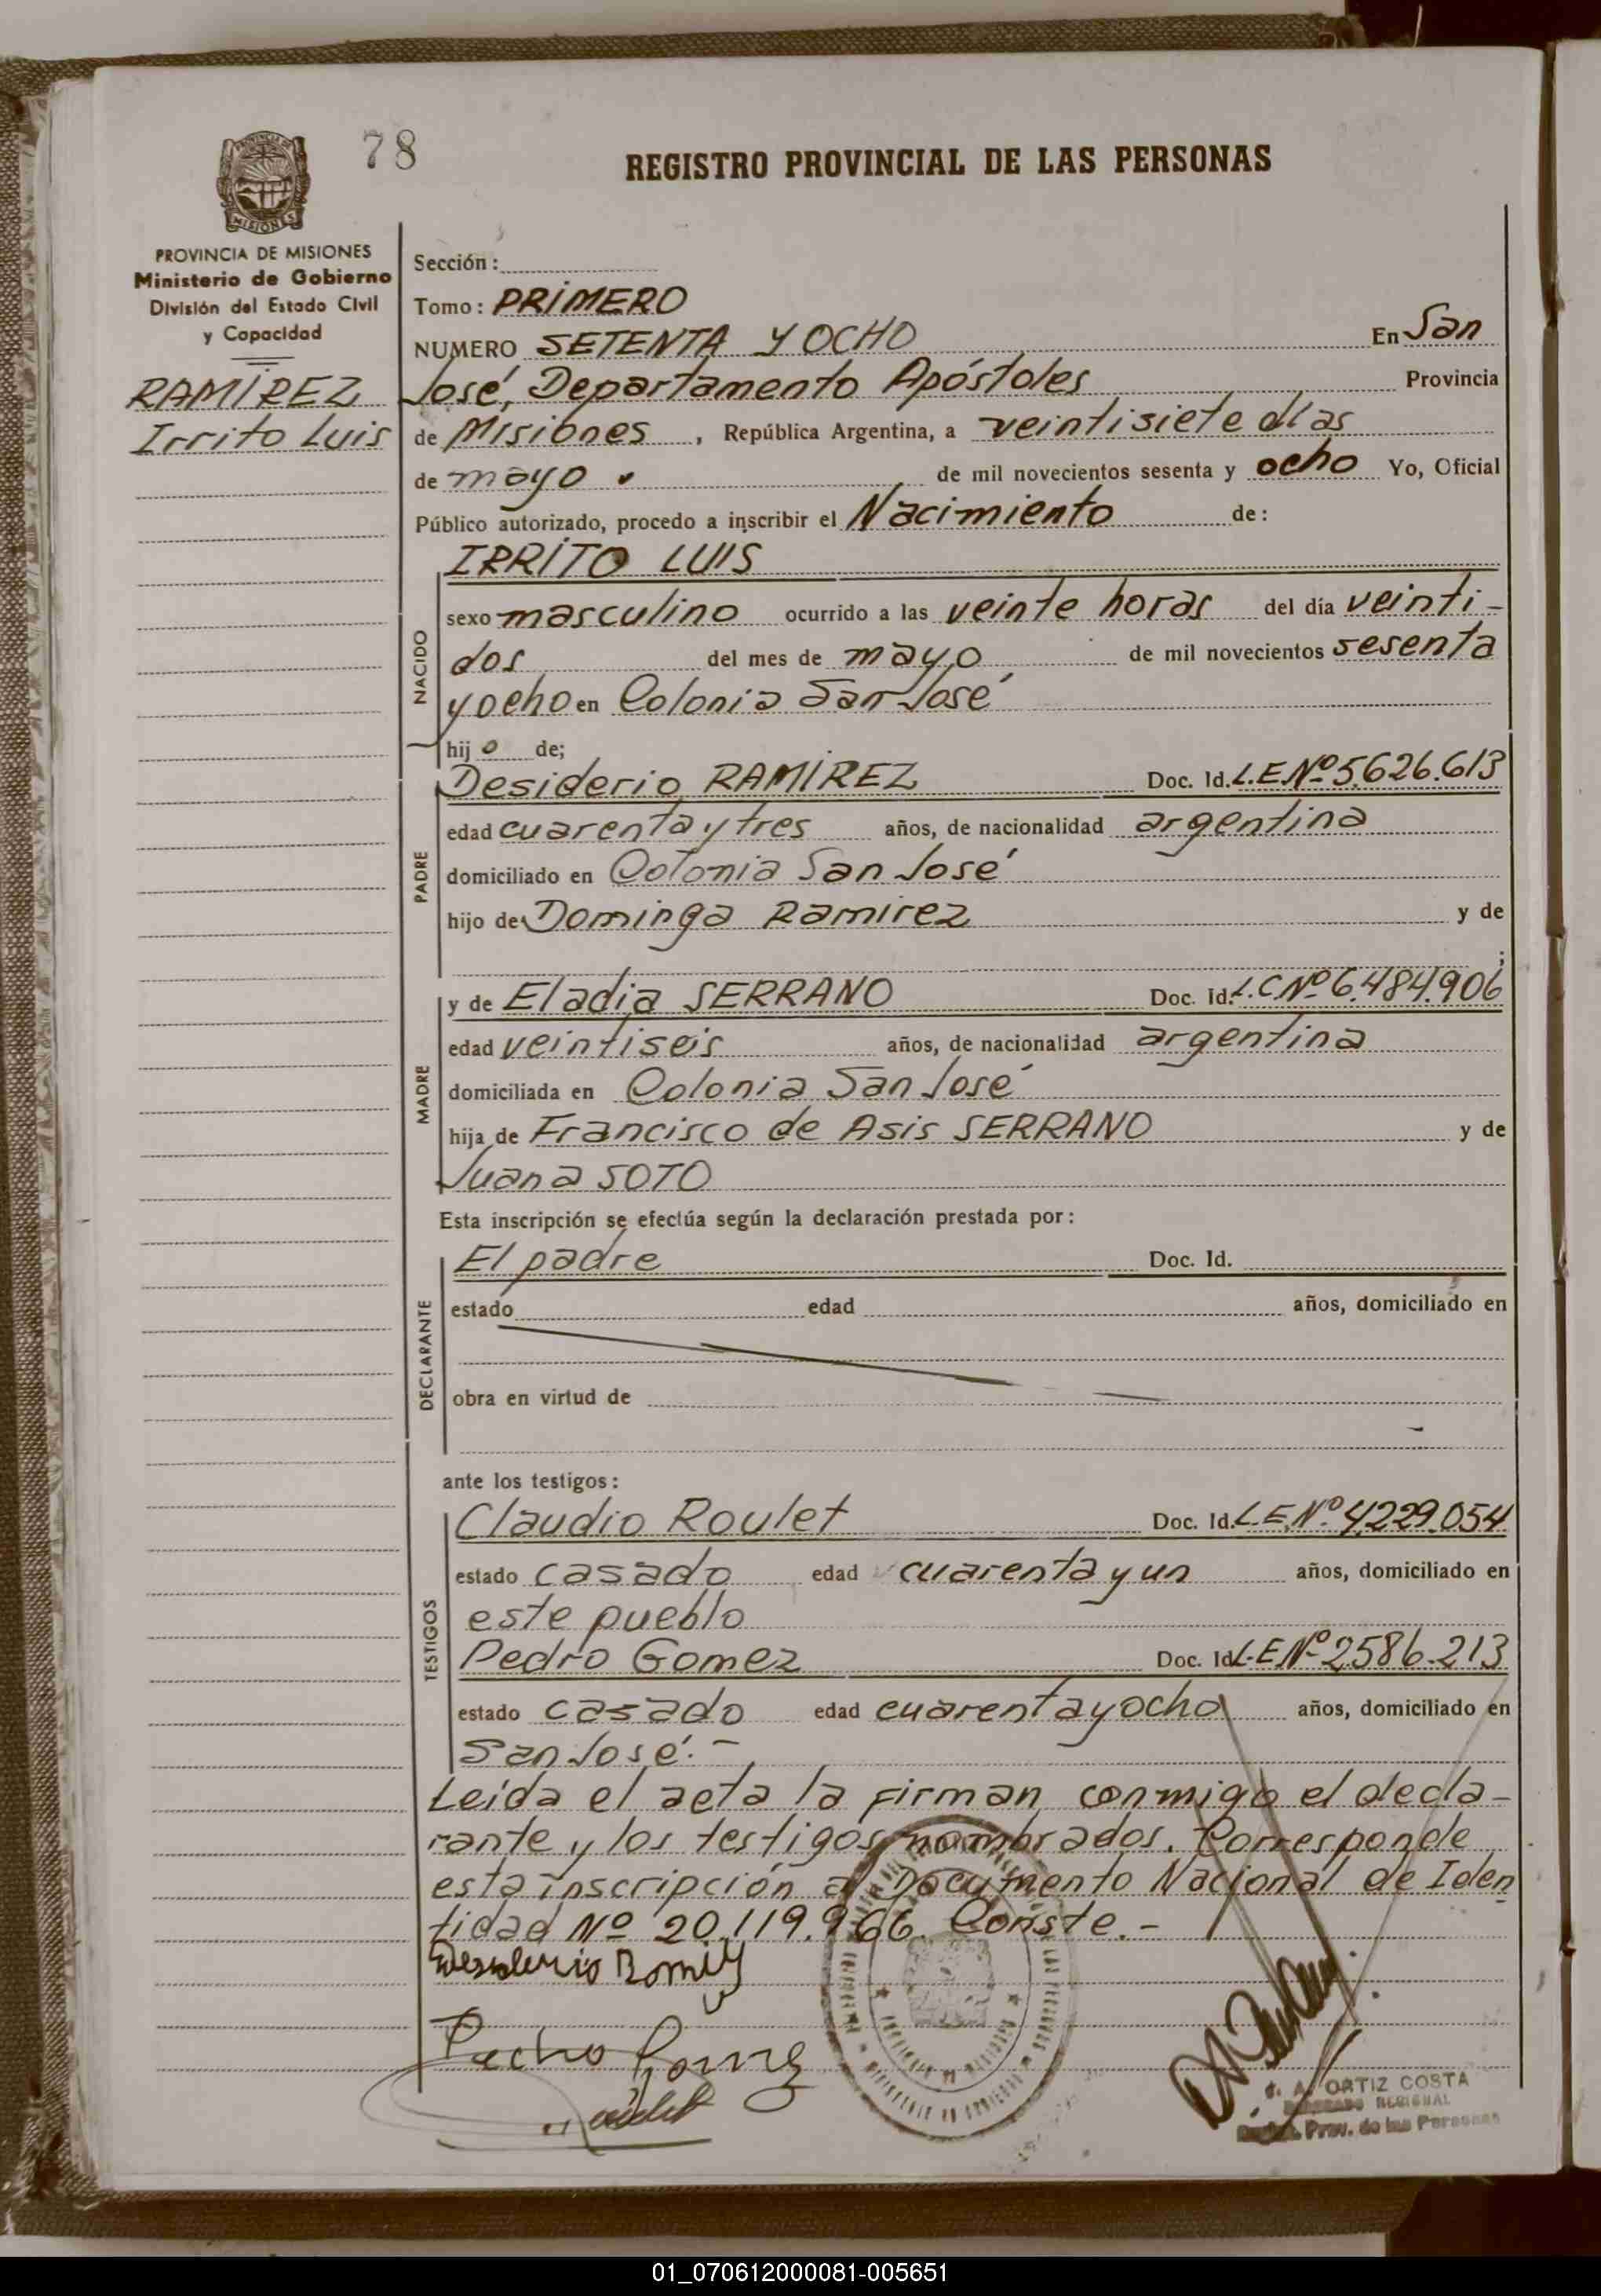 78
REGISTRO PROVINCIAL DE LAS PERSONAS
MISIONES
PROVINCIA DE MISIONES
Ministerio de Gobierno
División del Estado Civil
y Capacidad
RAMÍREZ
Irrito Luis
Sección:
Tomo: PRIMERO
NUMERO SETENTA Y OCHO En San
José, Departamento Apóstoles Provincia
de Misiones, República Argentina, a veintisiete días
de mayo de mil novecientos sesenta y ocho Yo, Oficial
Público autorizado, procedo a inscribir el Nacimiento de:
NACIDO
IRRITO LUIS
sexo masculino ocurrido a las veinte horas del día veinti-
dos del mes de mayo de mil novecientos sesenta
y ocho en Colonia San José
hijo de;
PADRE
Desiderio RAMÍREZ Doc. Id. L.E.Nº 5.626.613
edad cuarenta y tres años, de nacionalidad argentina
domiciliado en Colonia San José
hijo de Dominga Ramirez y de
;
MADRE
y de Eladia SERRANO Doc. Id. L.C.Nº 6.484.906
edad veintiseis años, de nacionalidad argentina
domiciliada en Colonia San José
hija de Francisco de Asis SERRANO y de
Juana SOTO
Esta inscripción se efectúa según la declaración prestada por:
DECLARANTE
El padre Doc. Id.
estado edad años, domiciliado en
obra en virtud de
ante los testigos:
TESTIGOS
Claudio Roulet Doc. Id. L.E.Nº 4.229.054
estado casado edad cuarenta y un años, domiciliado en
este pueblo
Pedro Gomez Doc. Id. L.E.Nº 2586.213
estado casado edad cuarenta y ocho años, domiciliado en
San José.-
Leída el acta la firman conmigo el decla-
rante y los testigos nombrados. Corresponde
esta inscripción al Documento Nacional de Iden
tidad Nº 20.119.966. Conste.-
Pedro Gomez
A. ORTIZ COSTA
REGIONAL
Prov. de las Personas
01_070612000081-005651